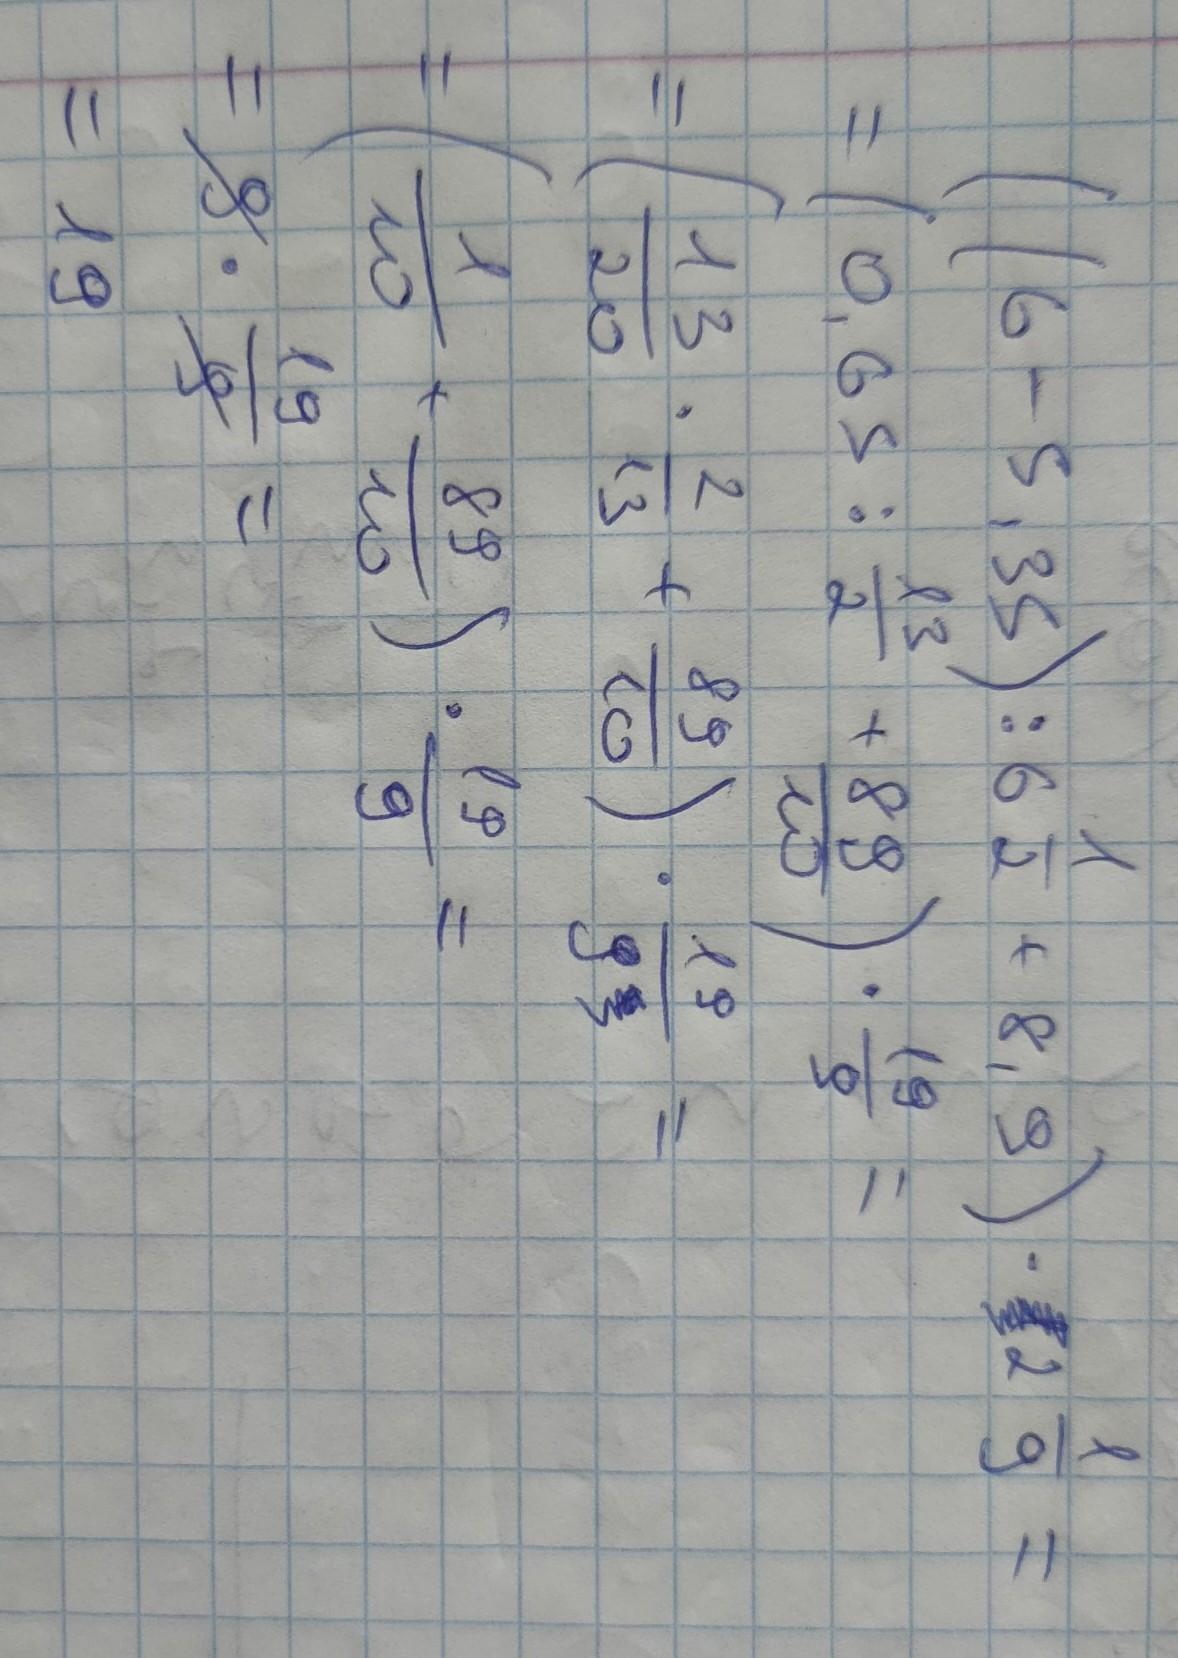 ((6-5,35):6 1/2 + 8,9) · 2 1/9 =
= (0,65 : 13/2 + 89/10) · 19/9 =
= (13/20 · 2/13 + 89/10) · 19/9 =
= (1/10 + 89/10) · 19/9 =
= 9 · 19/9 =
= 19